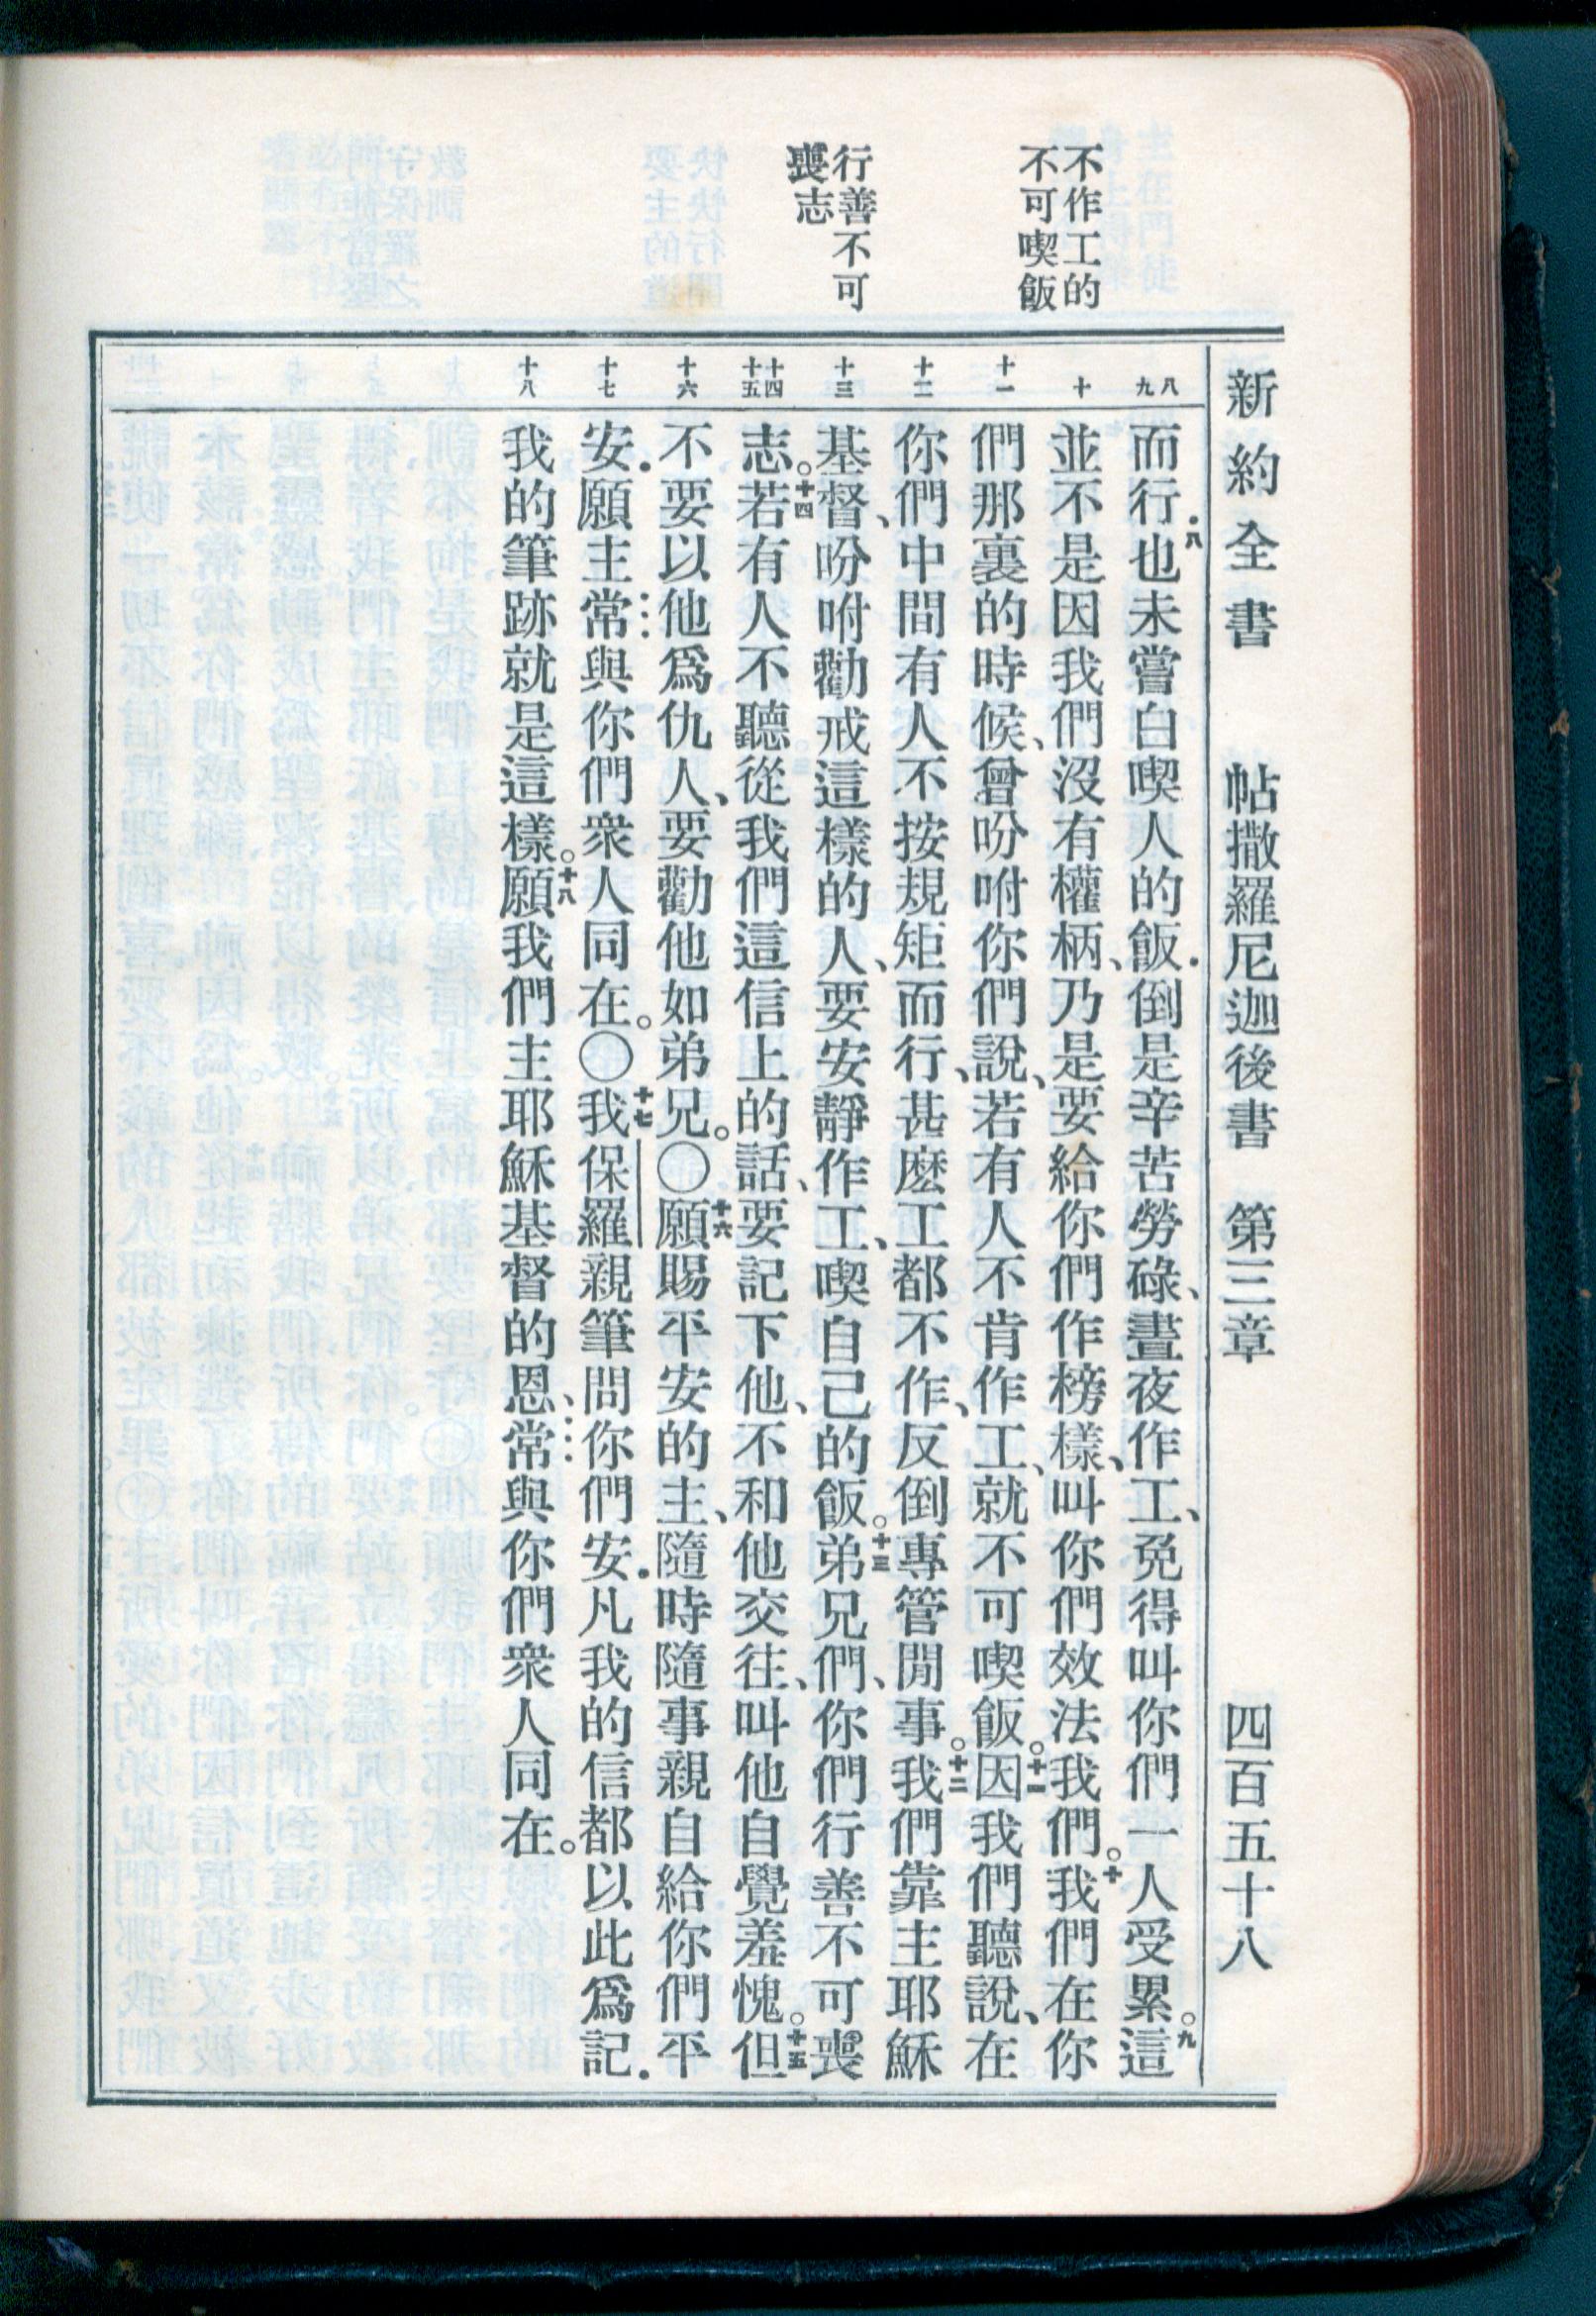 新約全書 帖撒羅尼迦後書 第三章 四百五十八
不作工的
不可喫飯
行善不可
喪志
八
九
十
十一
十二
十三
十四
十五
十六
十七
十八
而行．八也未嘗白喫人的飯．倒是辛苦勞碌、晝夜作工、免得叫你們一人受累。九這
並不是因我們沒有權柄、乃是要給你們作榜樣、叫你們效法我們。十我們在你
們那裏的時候、曾吩咐你們說、若有人不肯作工、就不可喫飯。十一因我們聽說、在
你們中間有人不按規矩而行、甚麽工都不作、反倒專管閒事。十二我們靠主耶穌
基督、吩咐勸戒這樣的人、要安靜作工、喫自己的飯。十三弟兄們、你們行善不可喪
志。十四若有人不聽從我們這信上的話、要記下他、不和他交往、叫他自覺羞愧。十五但
不要以他爲仇人、要勸他如弟兄。〇十六願賜平安的主、隨時隨事親自給你們平
安．願主常與你們衆人同在。〇十七我保羅親筆問你們安．凡我的信都以此爲記．
我的筆跡就是這樣。十八願我們主耶穌基督的恩、常與你們衆人同在。